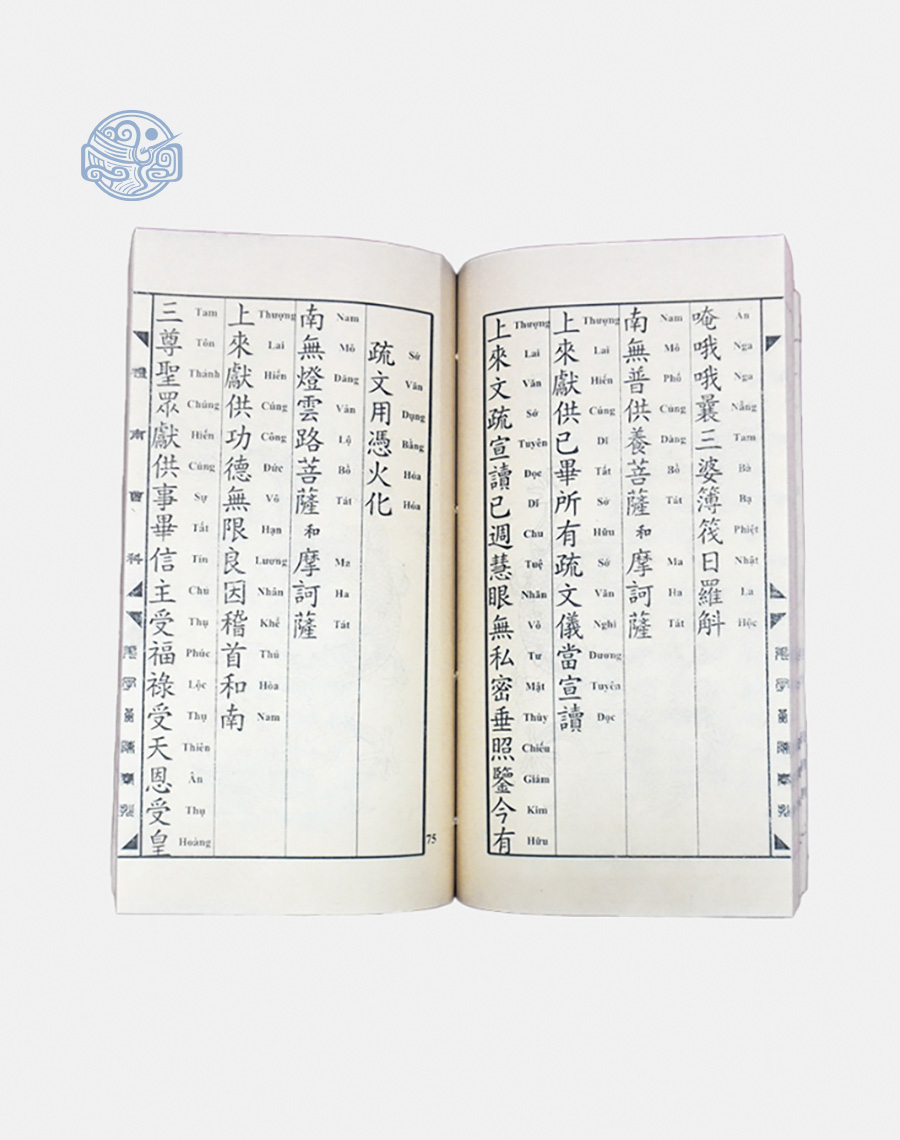 唵哦哦曩三婆簿筏日羅斛
Án Nga Nga Nẵng Tam Bà Bạ Phiệt Nhật La Hộc
南無普供養菩薩和摩訶薩
Nam Mô Phổ Cúng Dàng Bồ Tát Ma Ha Tát
上來獻供已畢所有疏文儀當宣讀
Thượng Lai Hiến Cúng Dĩ Tất Sở Hữu Sớ Văn Nghi Dương Tuyên Dọc
上來文疏宣讀已週慧眼無私密垂照鑒今有
Thượng Lai Văn Sớ Tuyên Dọc Dĩ Chu Tuệ Nhãn Vô Tư Mật Thùy Chiếu Giám Kim Hữu
疏文用憑火化
Sớ Văn Dụng Bằng Hỏa Hóa
南無燈雲路菩薩和摩訶薩
Nam Mô Dăng Vân Lộ Bồ Tát Ma Ha Tát
上來獻供功德無限良因稽首和南
Thượng Lai Hiến Cúng Công Đức Vô Hạn Lương Nhân Khể Thủ Hòa Nam
三尊聖眾獻供事畢信主受福祿受天恩受皇
Tam Tôn Thánh Chúng Hiến Cúng Sự Tất Tín Chủ Thụ Phúc Lộc Thụ Thiên Ân Thụ Hoàng
75